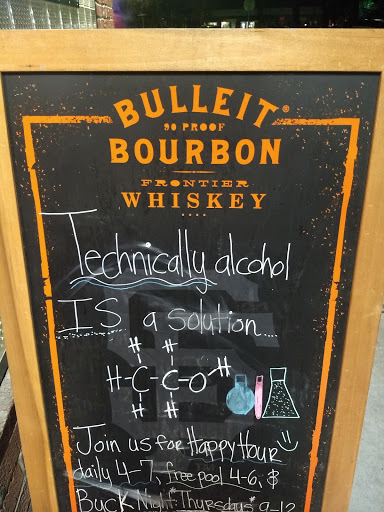 BULLEIT®
90 PROOF
BOURBON
FRONTIER
WHISKEY
Technically alcohol
IS a solution....
H H
H-C-C-O-H
H H
Join us for Happy Hour
daily 4-7, free pool 4-6, &
Buck Night: Thursdays* 9-12